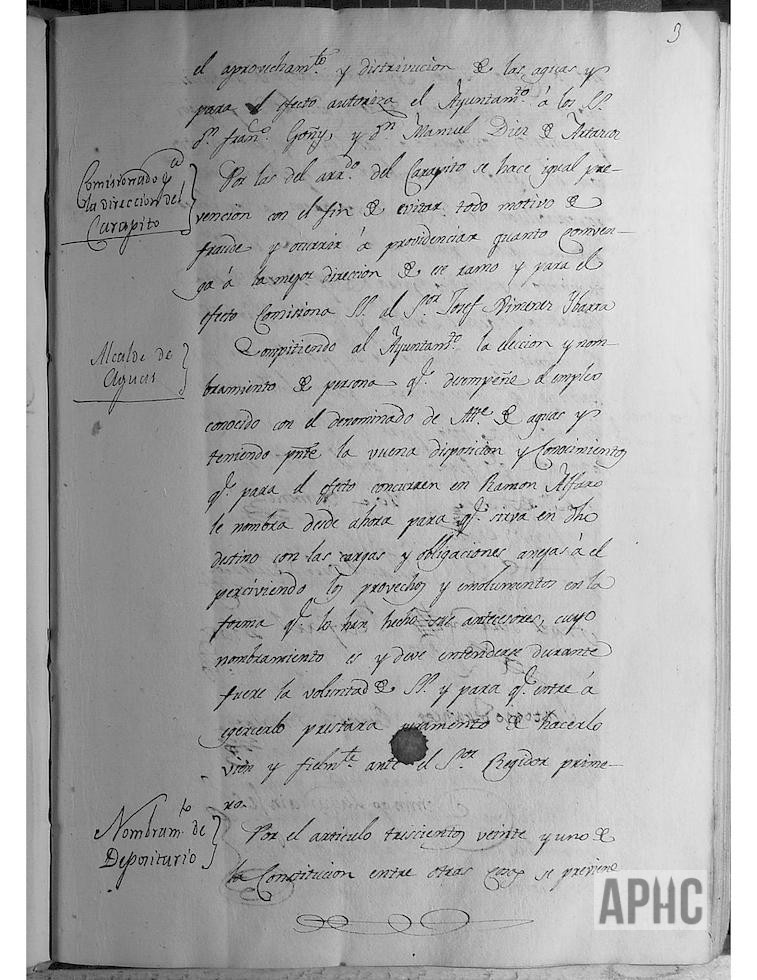 3
el aprovecham.to y distrivucion de las aguas y
para el efecto autoriza el Ayuntam.to á los SS.
d.n Fran.co Goñy, y d.n Manuel Diez de
Comisionado p.a
la direccion del
Carapito
Por las del arr.do del Carapito se hace igual pre-
vencion con el fin de evitar todo motivo de
fraude y ocurrir á providenciar quanto conven-
ga á la mejor direccion de ese ramo y para el
efecto Comisiona SS. al S.or Josef Ximenez Ybarra
Alcalde de
Aguas
Compitiendo al Ayuntam.to la eleccion y nom-
bramiento de persona q.e desempeñe el empleo
conocido con el denominado de Alc.e de aguas y
teniendo pnte la vuena disposicion y Conocimientos
q.e para el efecto concurren en Ramon Alfaro
le nombra desde ahora para q.e sirva en dho
destino con las cargas y obligaciones anejas á el
perciviendo los provechos y emolumentos en la
forma q.e lo han hecho sus antecesores, cuyo
nombramiento es y deve entenderse durante
fuere la voluntad de SS. y para q.e entre á
egercerlo prestara juramento de hacerlo
vien y fielm.te ante el S.or Regidor prime-
ro.
Nombram.to de
Depositario
Por el articulo trescientos veinte y uno de
la Constitucion entre otras cosas se previene
APHC